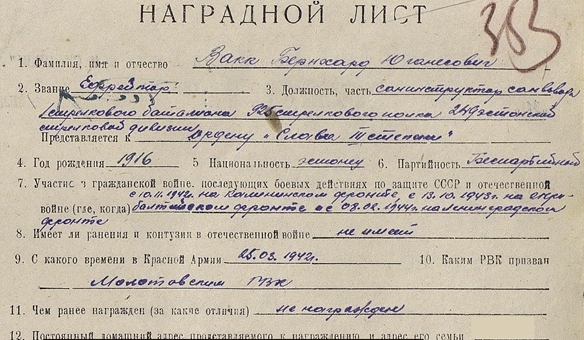 НАГРАДНОЙ ЛИСТ
383
1. Фамилия, имя и отчество Вакк Бернхард Юганесович
2. Звание Ефрейтор 3. Должность, часть санинструктор санвзвода
1 стрелкового батальона 925 стрелкового полка 249 Эстонской
стрелковой дивизии
Представляется к ордену "Слава III степени"
4. Год рождения 1916 5 Национальность эстонец 6. Партийность Беспартийный
7. Участие в гражданской войне, последующих боевых действиях по защите СССР и отечественной
1942г. на Калининском фронте, с 13.10.1943г. на 2 при-
войне (где, когда) балтийском фронте и с 08.02.1944г. на ленинградском
фронте
8. Имеет ли ранения и контузии в отечественной войне не имеет
9. С какого времени в Красной Армии 25.03.1942г. 10. Каким РВК призван
Молотовским РВК
11. Чем ранее награжден (за какие отличия) не награжден
12. Постоянный домашний адрес представляемого к награждению и адрес его семьи